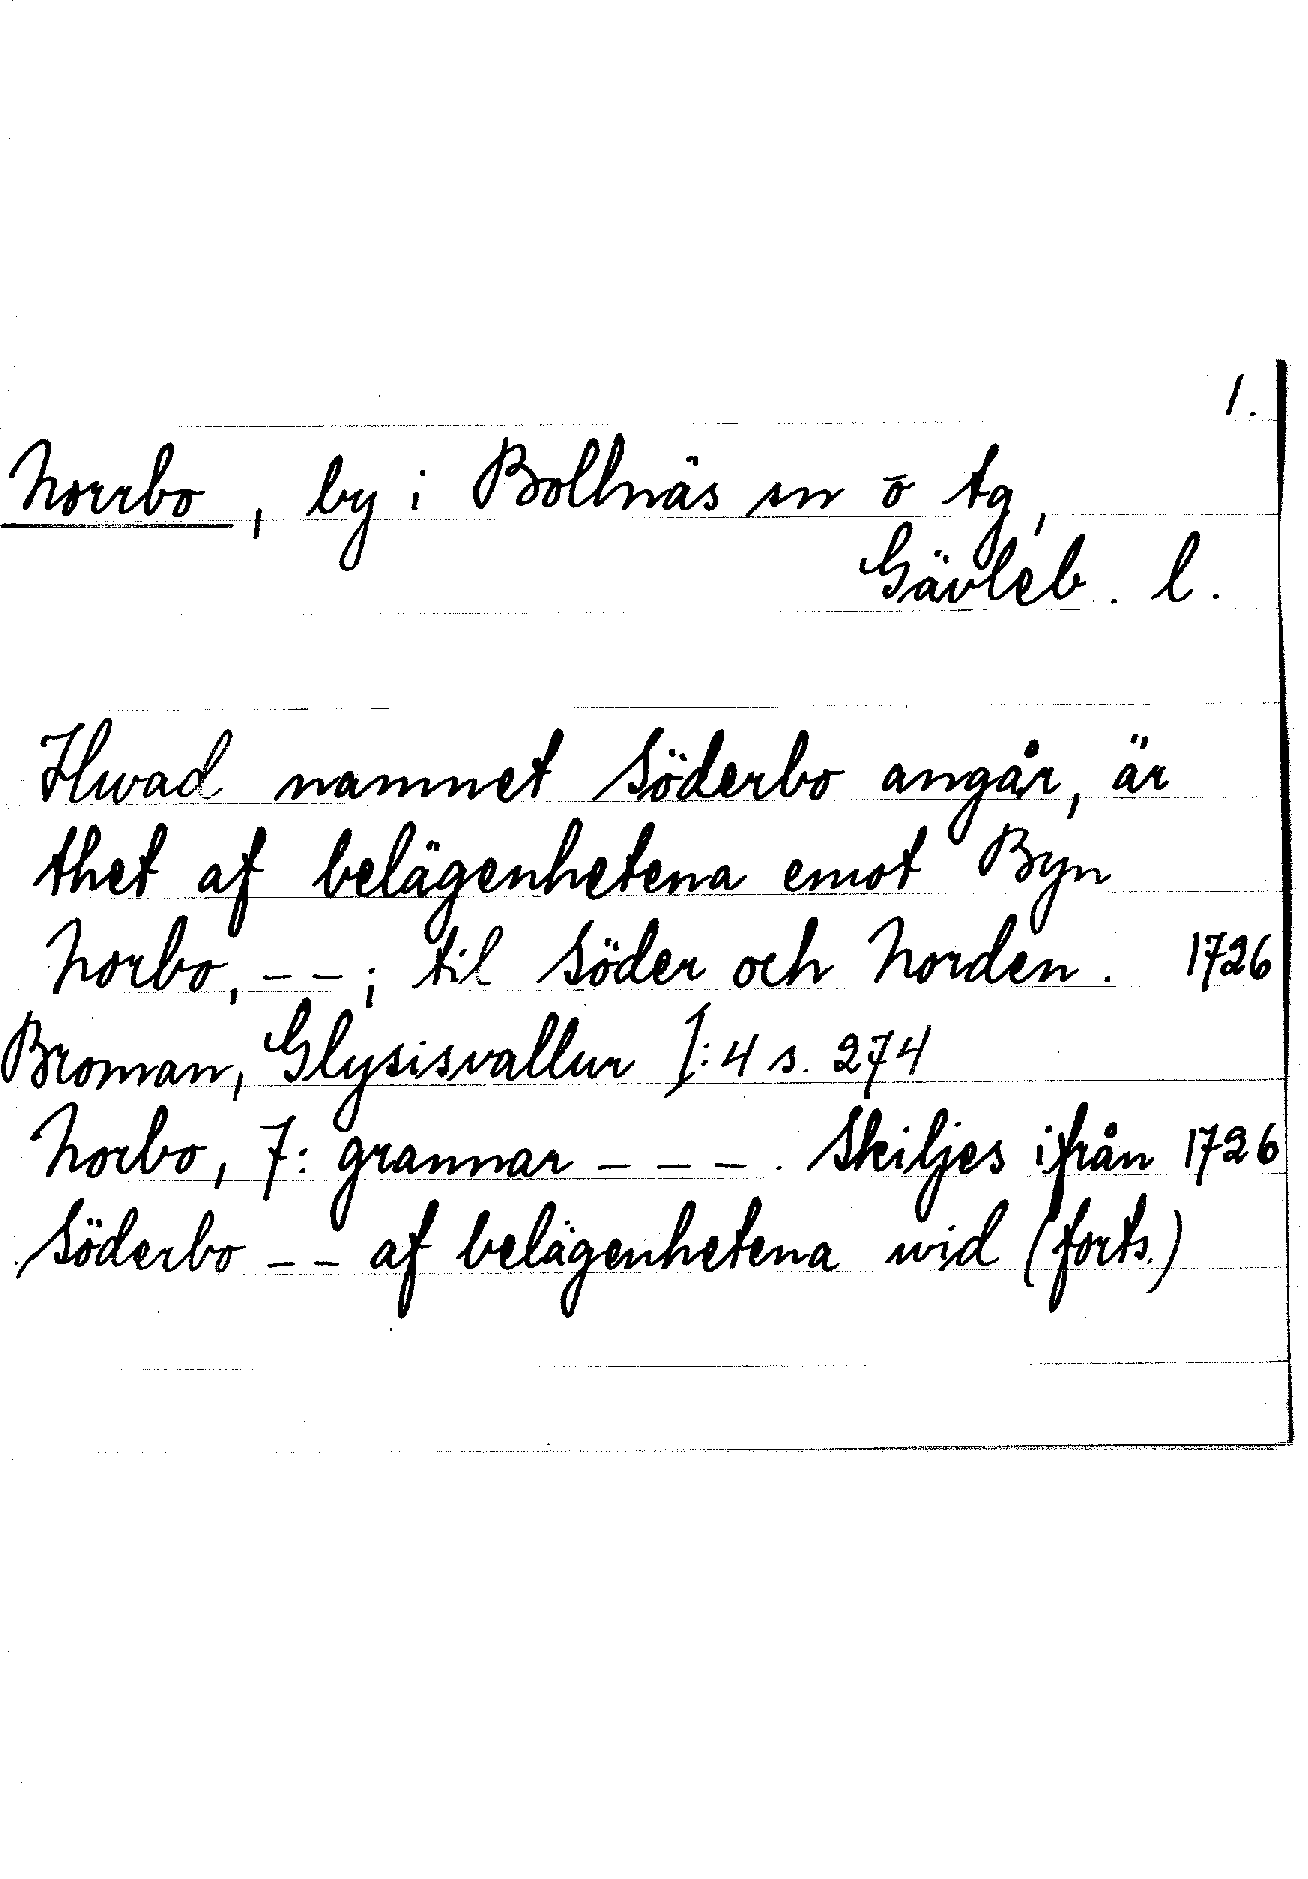 1.
Norrbo, by i Bollnäs sn o tg,
Gävleb. l.
Hwad namnet Söderbo angår, är
thet af belägenhetena emot Byn
Norbo, _ _ ; til Söder och Norden. 1726
Broman, Glysisvallur I:4 s. 274
Norbo, 7: grannar _ _ _ . Skiljes ifrån 1726
Söderbo _ _ af belägenhetena wid (forts.)